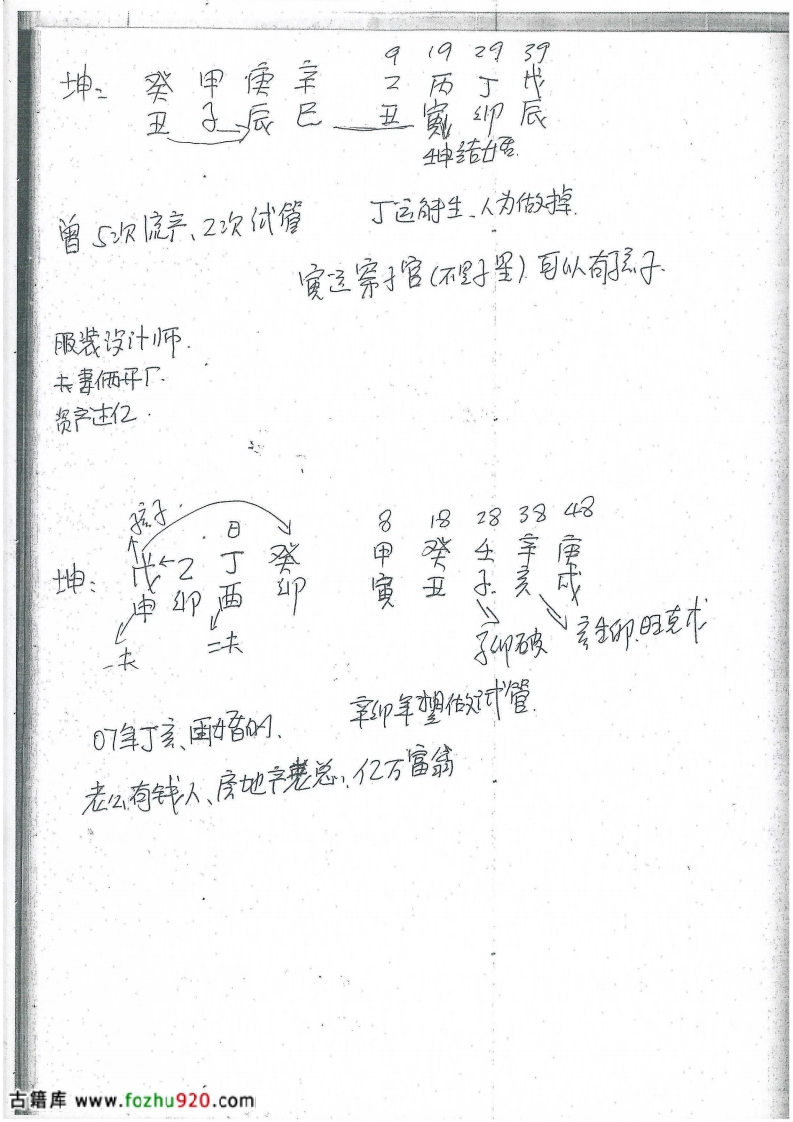 9 19 29 39
坤: 癸 甲 庚 辛 乙 丙 丁 戊
丑 子 辰 巳 丑 寅 卯 辰
结婚
曾5次流产、2次试管 丁运能生、人为做掉.
寅运 子宫(不是子星) 可以有孩子.
服装设计师.
夫妻俩开厂.
资产过亿.
孩子 日 8 18 28 38 48
坤: 戊 乙 丁 癸 甲 癸 壬 辛 庚
申 卯 酉 卯 寅 丑 子 亥 戌
一夫 二夫 子卯破 亥生卯.旺克戊
07年丁亥、再婚的. 辛卯年想做试管.
老公有钱人、房地产老总、亿万富翁
古籍库 www.fozhu920.com